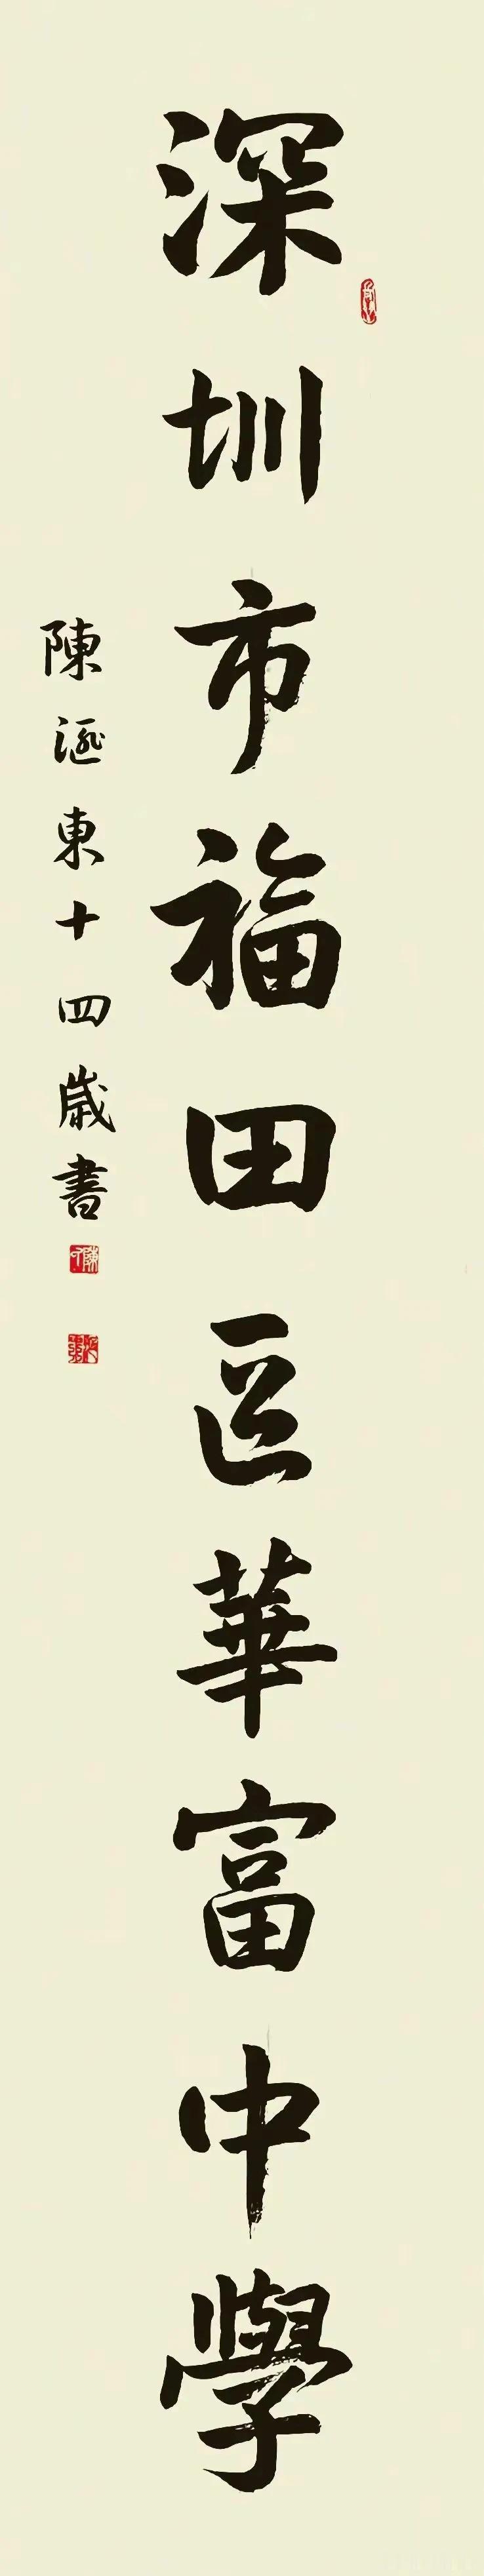 深圳市福田区華富中學
陳涎東十四歲書